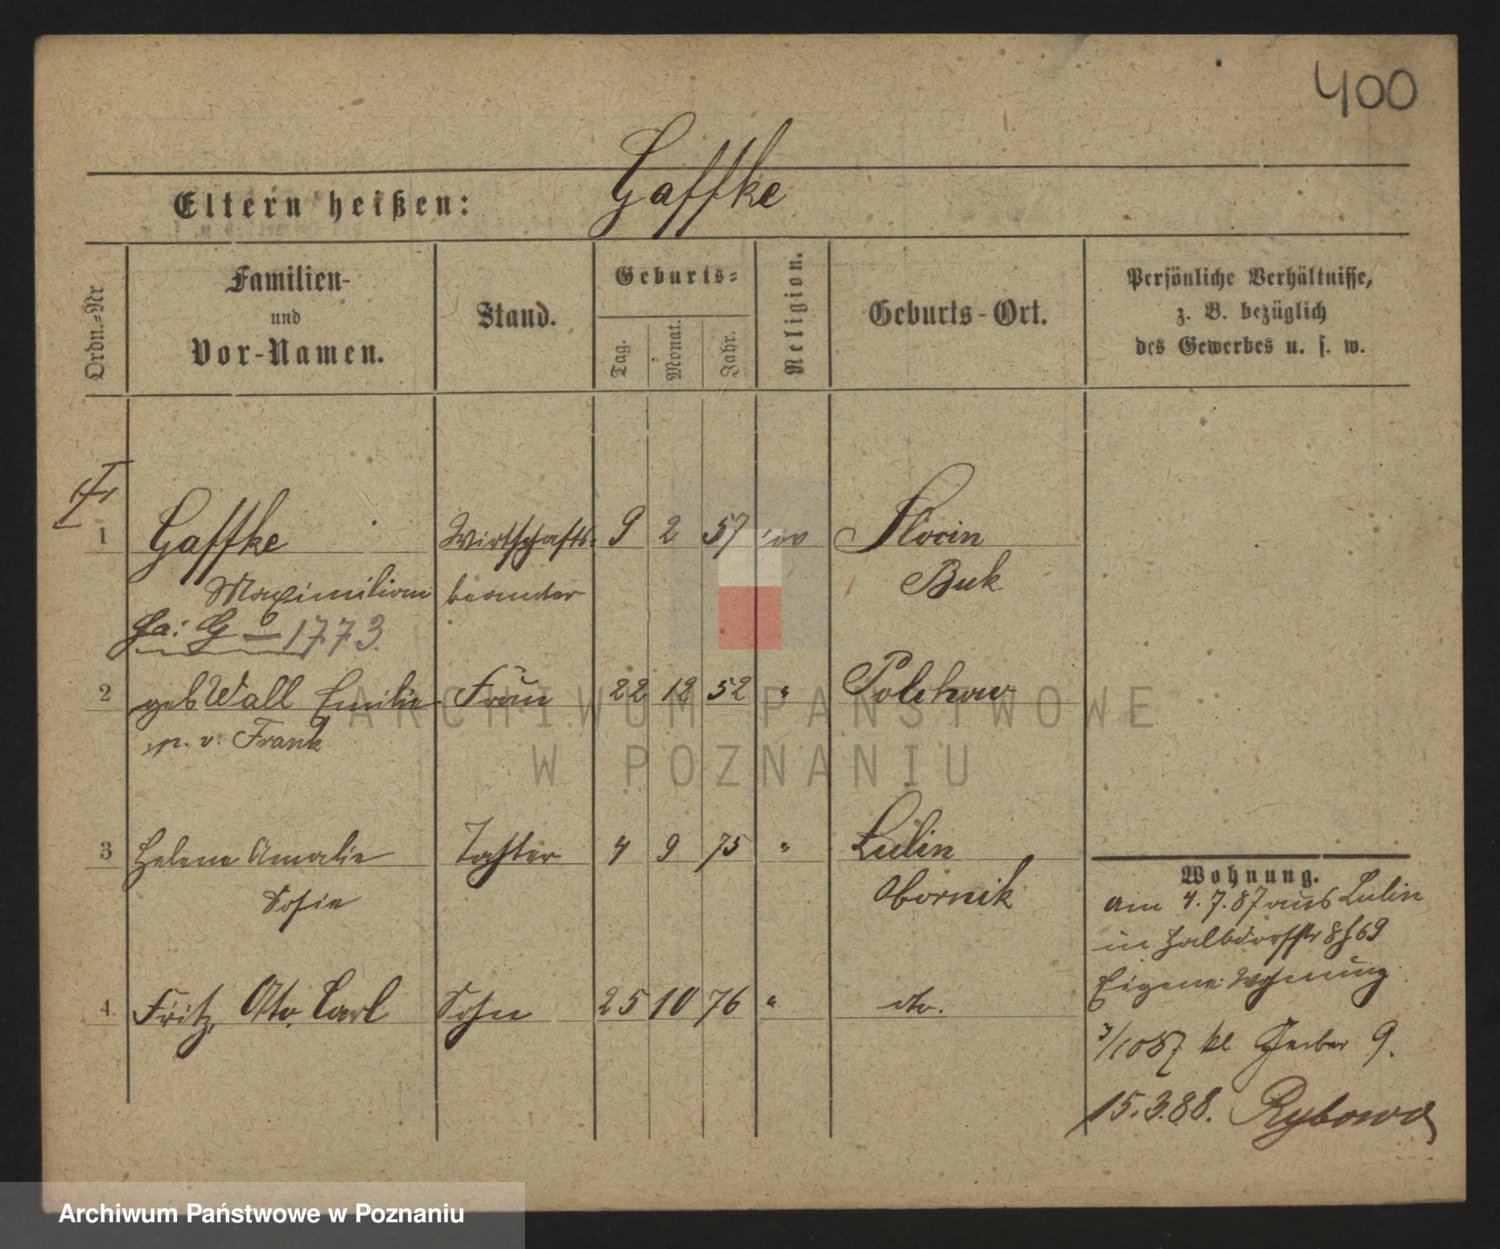 400
Eltern heißen: Gaffke
Ordn.-Nr
Familien-
und
Vor-Namen.
Stand.
Geburts-
Tag. Monat. Jahr.
Religion.
Geburts-Ort.
Persönliche Verhältnisse,
z. B. bezüglich
des Gewerbes u. s. w.
1 Gaffke Wirtschafts- 9 2 57 ev Slocin
Maximilian beamter Buk
Fa: G 1773.
2 geb Wall Emilie Frau 22 12 52 " Polchow
p. v. Frank
3 Helene Amalie Tochter 4 9 75 " Lulin
Sofie Obornik
4. Fritz, Otto, Carl Sohn 25 10 76 " do.
Wohnung.
am 4. 7. 87 aus Lulin
in Halbdorfstr 8 b 69
Eigene Wohnung.
3/10 87 kl Gerber 9.
15.3.88. Rybowo
ARCHIWUM PAŃSTWOWE
W POZNANIU
Archiwum Państwowe w Poznaniu